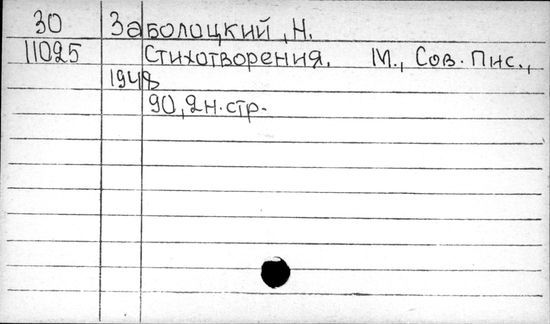 30 Заболоцкий, Н.
11025 Стихотворения. М., Сов. Пис.,
1948
90, 2н. стр.